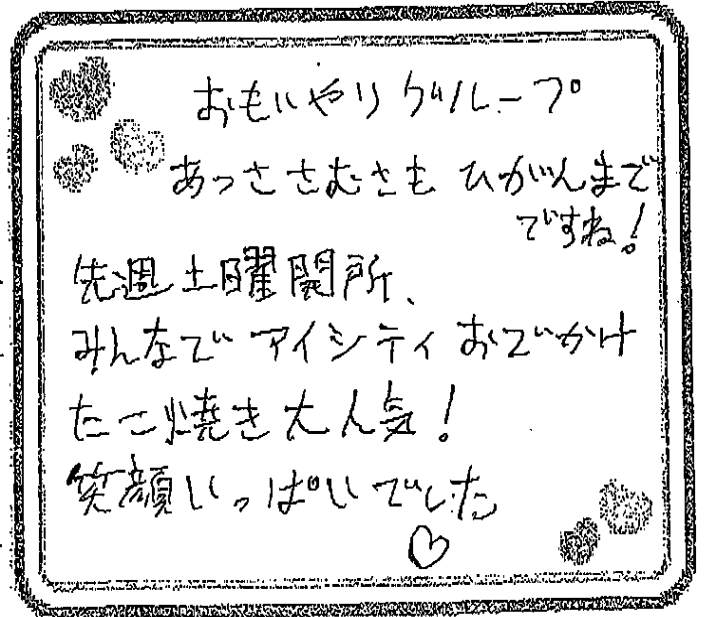 おもいやりグループ
あっささむさも ひがんまで
ですね!
先週土曜開所、
みんなで アイシティ おでかけ
たこ焼き大人気!
笑顔いっぱいでした
♡